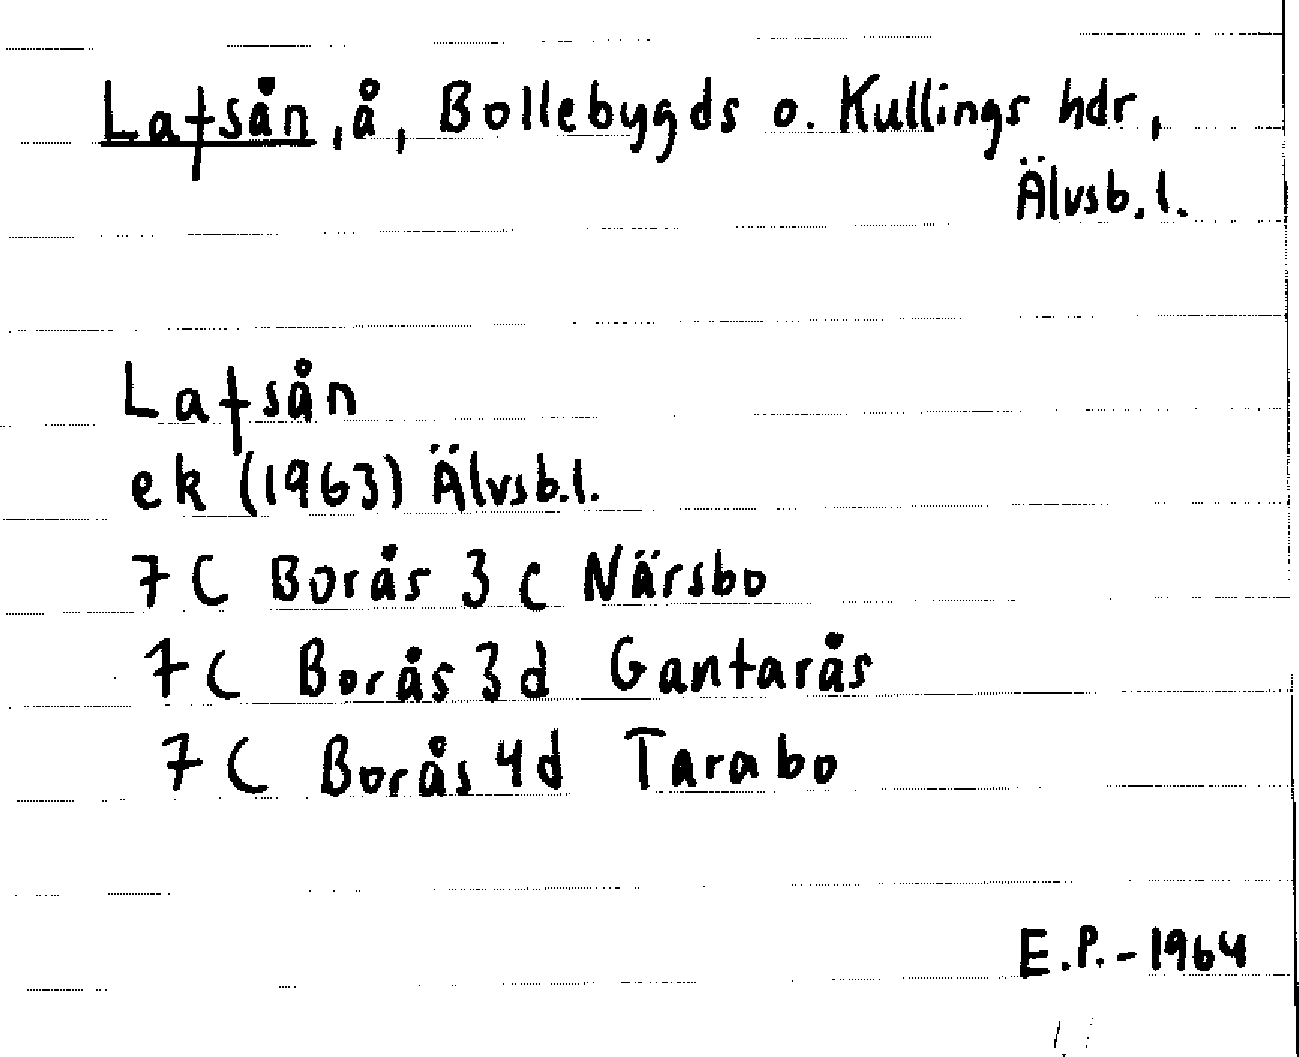 Lafsån, å, Bollebygds o. Kullings hdr,
Älvsb. l.
Lafsån
ek (1963) Älvsb.l.
7 C Borås 3 c Närsbo
7 C Borås 3 d Gantarås
7 C Borås 4 d Tarabo
E.P. - 1964